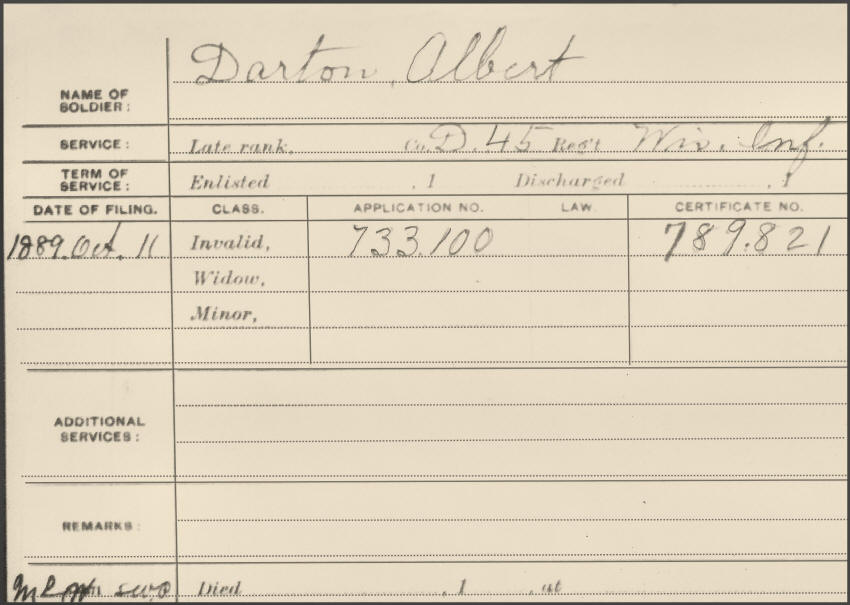 Darton, Albert
NAME OF
SOLDIER:
SERVICE: Late rank, Co. D. 45 Reg't Wis. Inf.
TERM OF
SERVICE: Enlisted , 1 Discharged , 1
DATE OF FILING. CLASS. APPLICATION NO. LAW. CERTIFICATE NO.
1889. Oct. 11 Invalid, 733.100 789.821
Widow,
Minor,
ADDITIONAL
SERVICES:
REMARKS:
Died , 1 , at